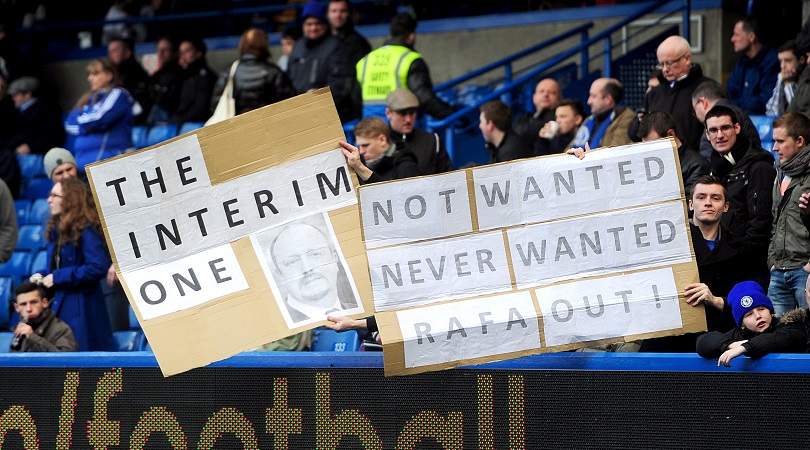 THE
INTERIM
ONE
NOT WANTED
NEVER WANTED
RAFA OUT!
/football